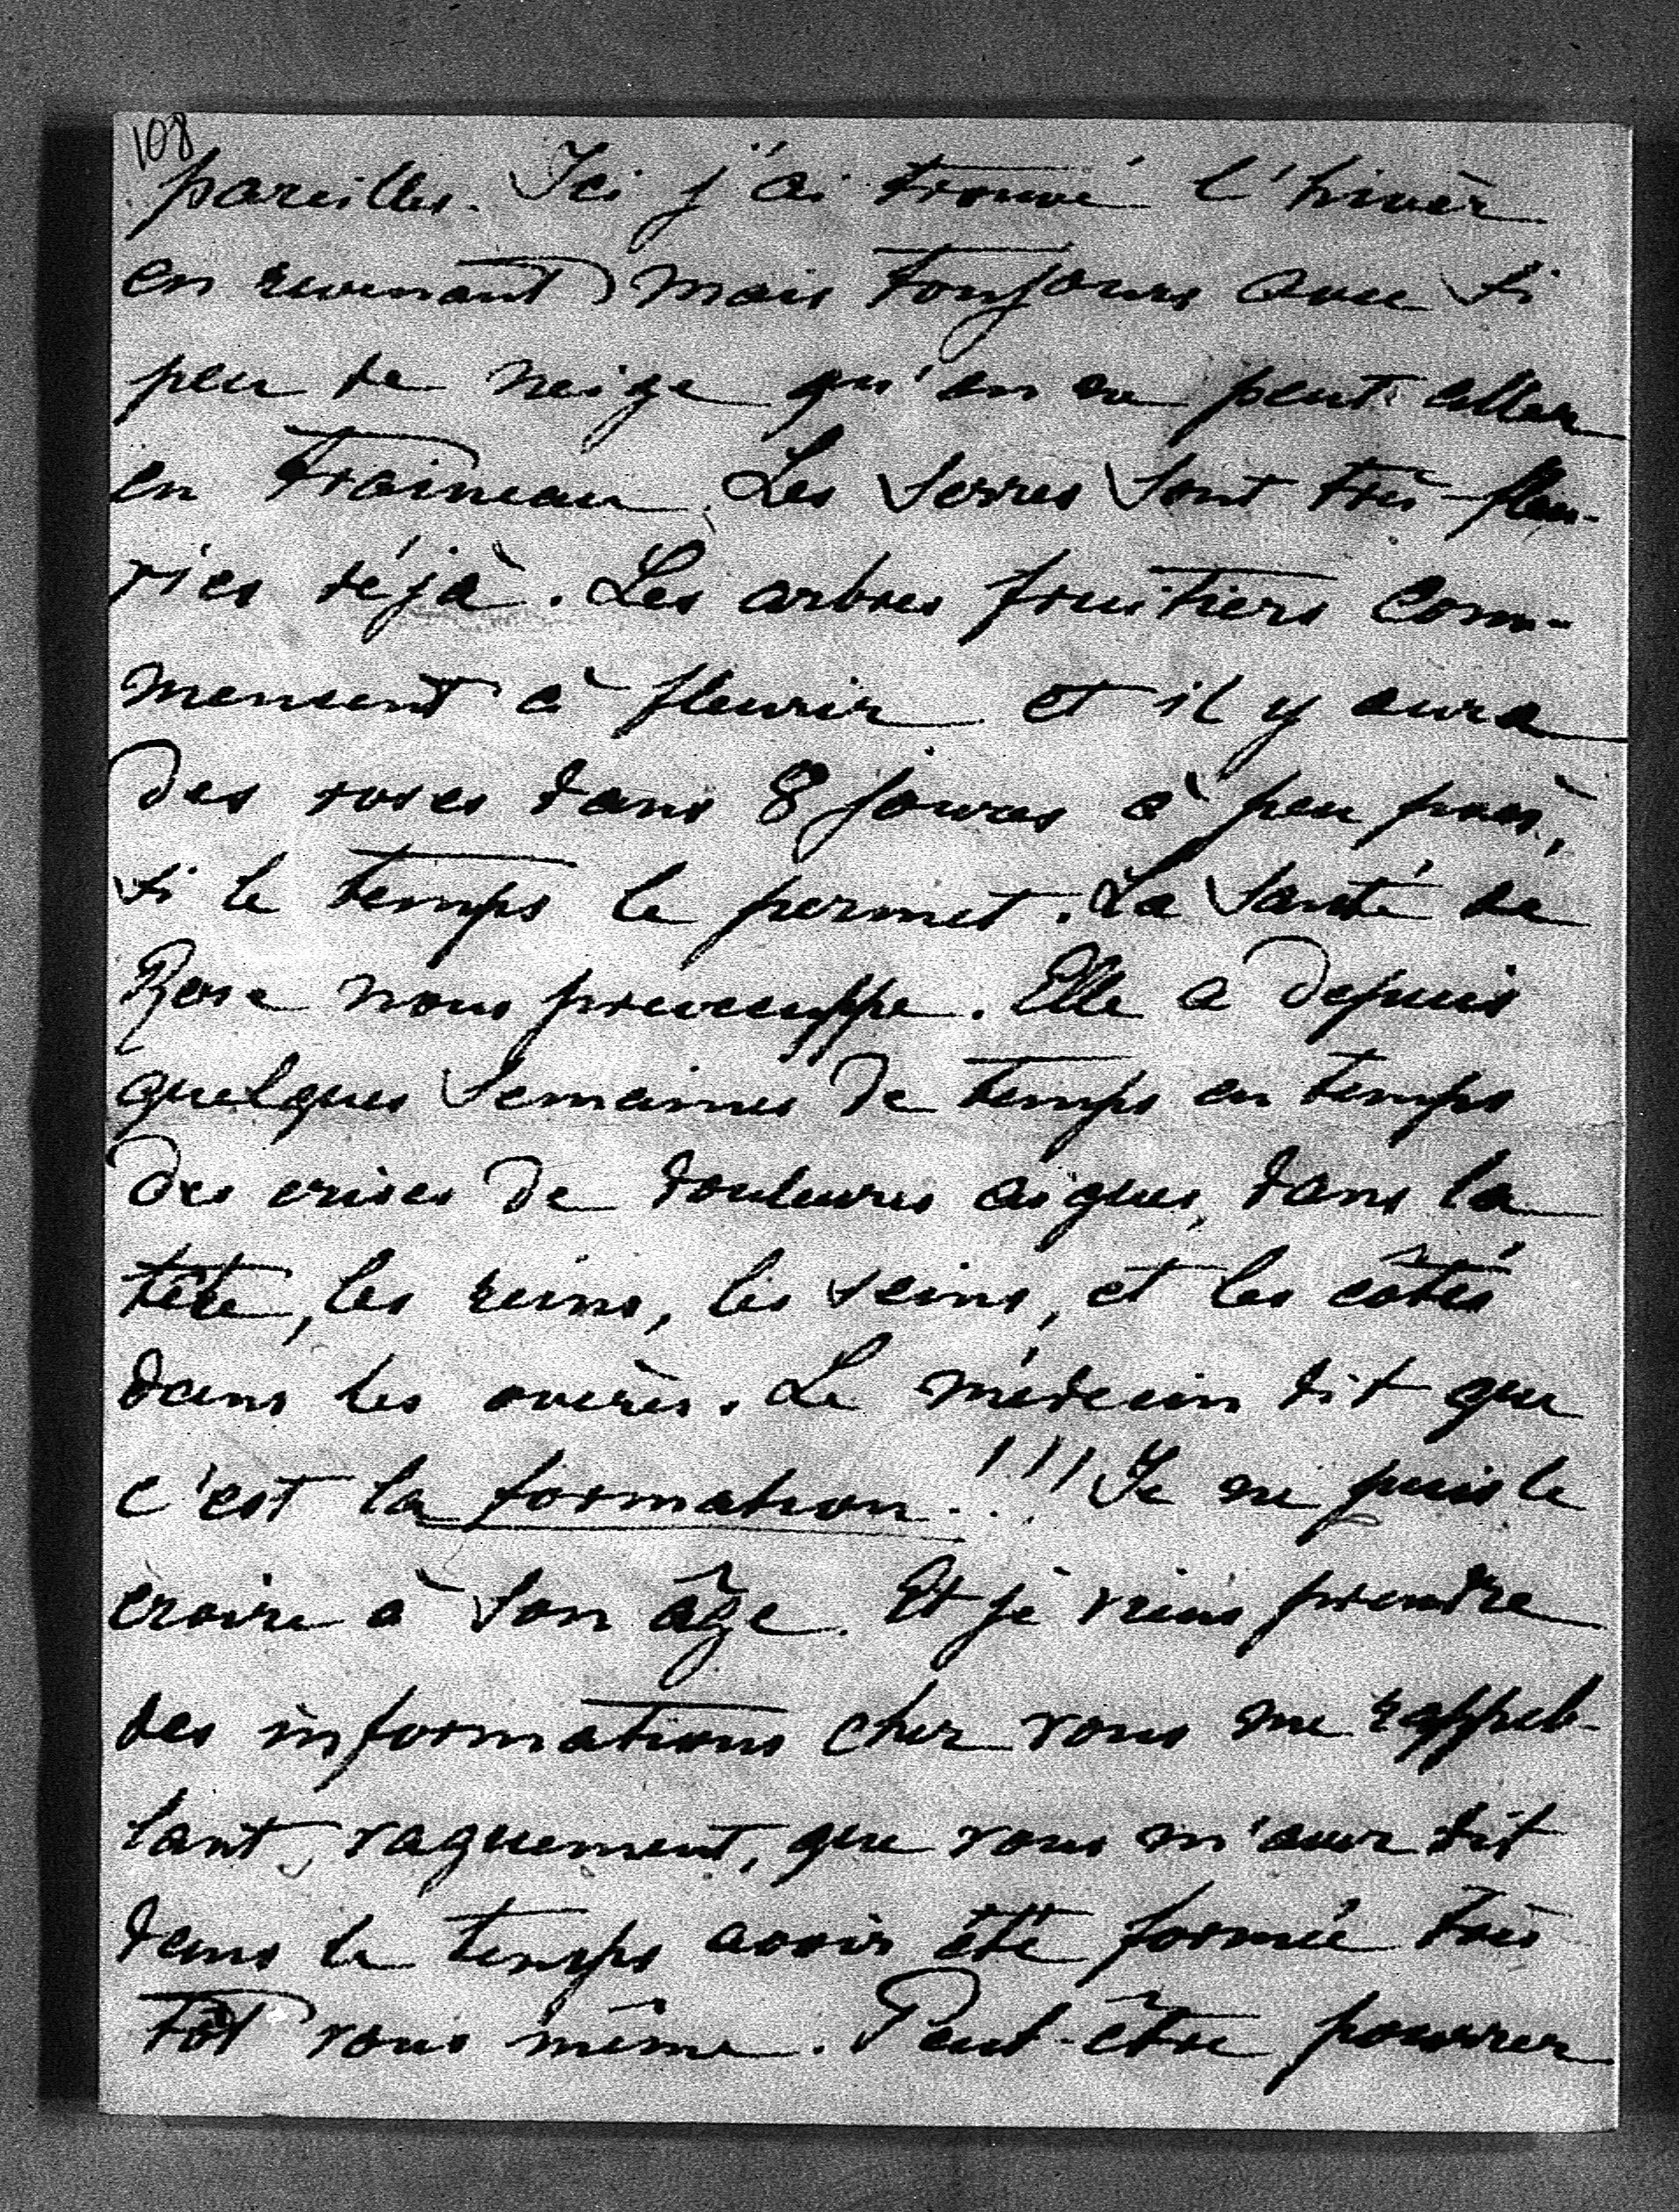 108
pareilles. Ici j'ai trouvé l'hivèr
en revenant, mais toujours avec si
peu de neige qu'on ne peut aller
en traineau. Les serres sont très fleu-
ries déjà. Les arbres fruitiers com-
mencent à fleurir et il y aura
des roses dans 8 jours à peu près,
si le temps le permet. La santé de
nous préoccuppe. Elle a depuis
quelques semaines de temps en temps
des crises de douleurs aigues, dans la
tête, les reins, les seins, et les côtés
dans les overès. Le médecin dit que
c'est la formation!!! Je ne puis le
croire à son âge. Et je viens prendre
des informations chez vous me rappel-
lant, vaguement, que vous m'avez dit
dans le temps avoir été formée très
tôt vous même. Peut-être pourrez